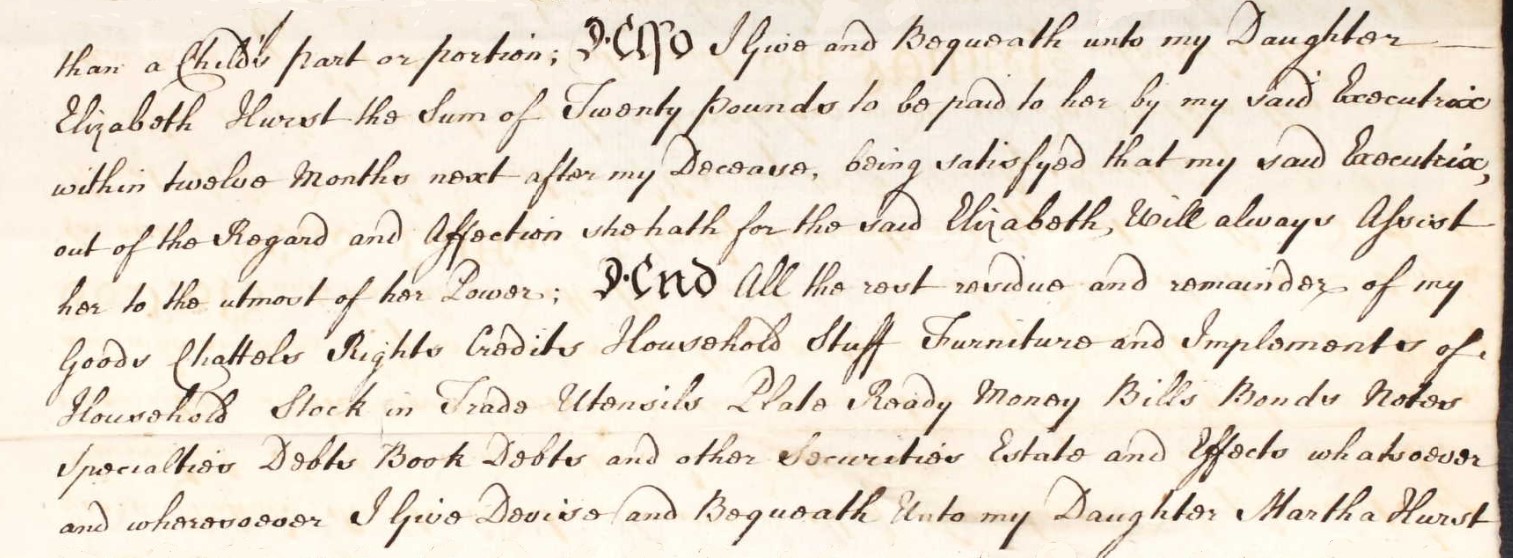 than a Child's part or portion; Also I Give and Bequeath unto my Daughter —
Elizabeth Hurst the Sum of Twenty pounds to be paid to her by my said Executrix
within twelve Months next after my Decease, being satisfyed that my said Executrix,
out of the Regard and Affection she hath for the said Elizabeth, Will always Assist
her to the utmost of her Power; And All the rest residue and remainder of my
Goods Chattels Rights Credits Household Stuff Furniture and Implements of
Household Stock in Trade Utensils Plate Ready Money Bills Bonds Notes
Specialties Debts Book Debts and other Securities Estate and Effects whatsoever
and wheresoever I Give Devise and Bequeath Unto my Daughter Martha Hurst